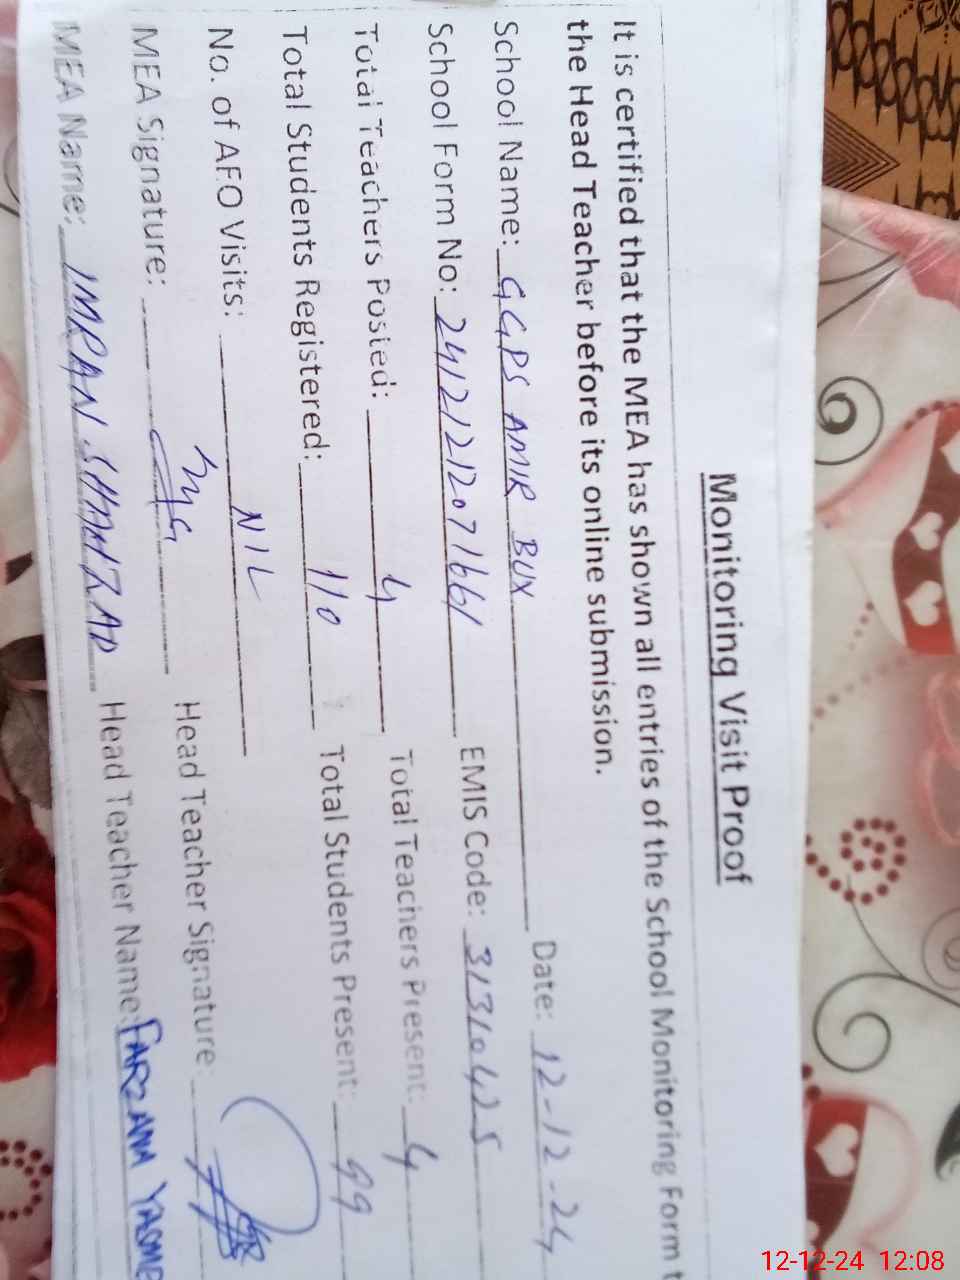 Monitoring Visit Proof
It is certified that the MEA has shown all entries of the School Monitoring Form t
the Head Teacher before its online submission.
School Name: GGPS AMIR BUX Date: 12-12-24
School Form No: 241212071661 EMIS Code: 31310425
Total Teachers Posted: 4 Total Teachers Present: 4
Total Students Registered: 110 Total Students Present: 99
No. of AFO Visits: NIL
MEA Signature: Head Teacher Signature:
MEA Name: IMRAN SHAHZAD Head Teacher Name: FARZANA YASME
12-12-24 12:08